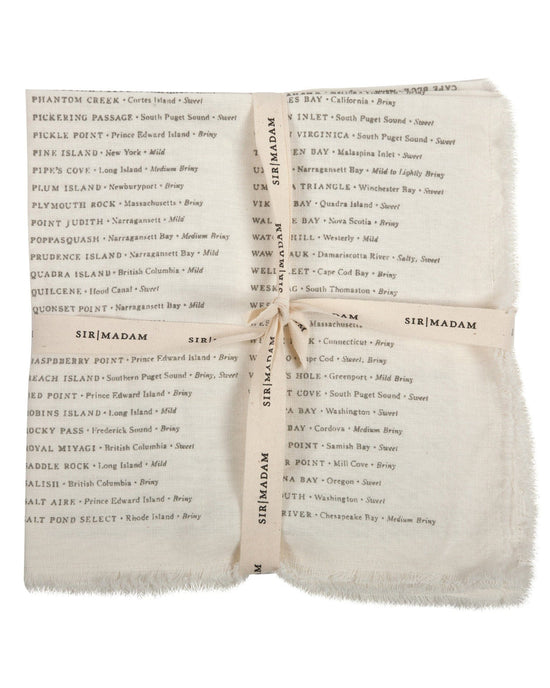 PHANTOM CREEK • Cortes Island • Sweet
PICKERING PASSAGE • South Puget Sound • Sweet
PICKLE POINT • Prince Edward Island • Briny
PINE ISLAND • New York • Mild
PIPE'S COVE • Long Island • Medium Briny
PLUM ISLAND • Newburyport • Briny
PLYMOUTH ROCK • Massachusetts • Briny
POINT JUDITH • Narragansett • Mild
POPPASQUASH • Narragansett Bay • Medium Briny
PRUDENCE ISLAND • Narragansett Bay • Mild
QUADRA ISLAND • British Columbia • Mild
QUILCENE • Hood Canal • Sweet
QUONSET POINT • Narragansett Bay • Mild
RASPBERRY POINT • Prince Edward Island • Briny
REACH ISLAND • Southern Puget Sound • Briny, Sweet
RED POINT • Prince Edward Island • Briny
ROBINS ISLAND • Long Island • Mild
ROCKY PASS • Frederick Sound • Briny
ROYAL MIYAGI • British Columbia • Sweet
SADDLE ROCK • Long Island • Mild
SALISH • British Columbia • Briny
SALT AIRE • Prince Edward Island • Briny
SALT POND SELECT • Rhode Island • Briny
ES BAY • California • Briny
N INLET • South Puget Sound • Sweet
T VIRGINICA • South Puget Sound • Sweet
EN BAY • Malaspina Inlet • Sweet
Narragansett Bay • Mild to Lightly Briny
A TRIANGLE • Winchester Bay • Sweet
BAY • Quadra Island • Sweet
E BAY • Nova Scotia • Briny
HILL • Westerly • Mild
AUK • Damariscotta River • Salty, Sweet
EET • Cape Cod Bay • Briny
G • South Thomaston • Briny
Massachusetts
K • Connecticut • Briny
Cape Cod • Sweet, Briny
S HOLE • Greenport • Mild Briny
T COVE • South Puget Sound • Sweet
PA BAY • Washington • Sweet
BAY • Cordova • Medium Briny
POINT • Samish Bay • Sweet
R POINT • Mill Cove • Briny
NA BAY • Oregon • Sweet
OUTH • Washington • Sweet
RIVER • Chesapeake Bay • Medium Briny
SIR|MADAM
SIR|MADAM
SIR|MADAM
SIR|MADAM
SIR|MADAM
SIR|MADAM
SIR|MADAM